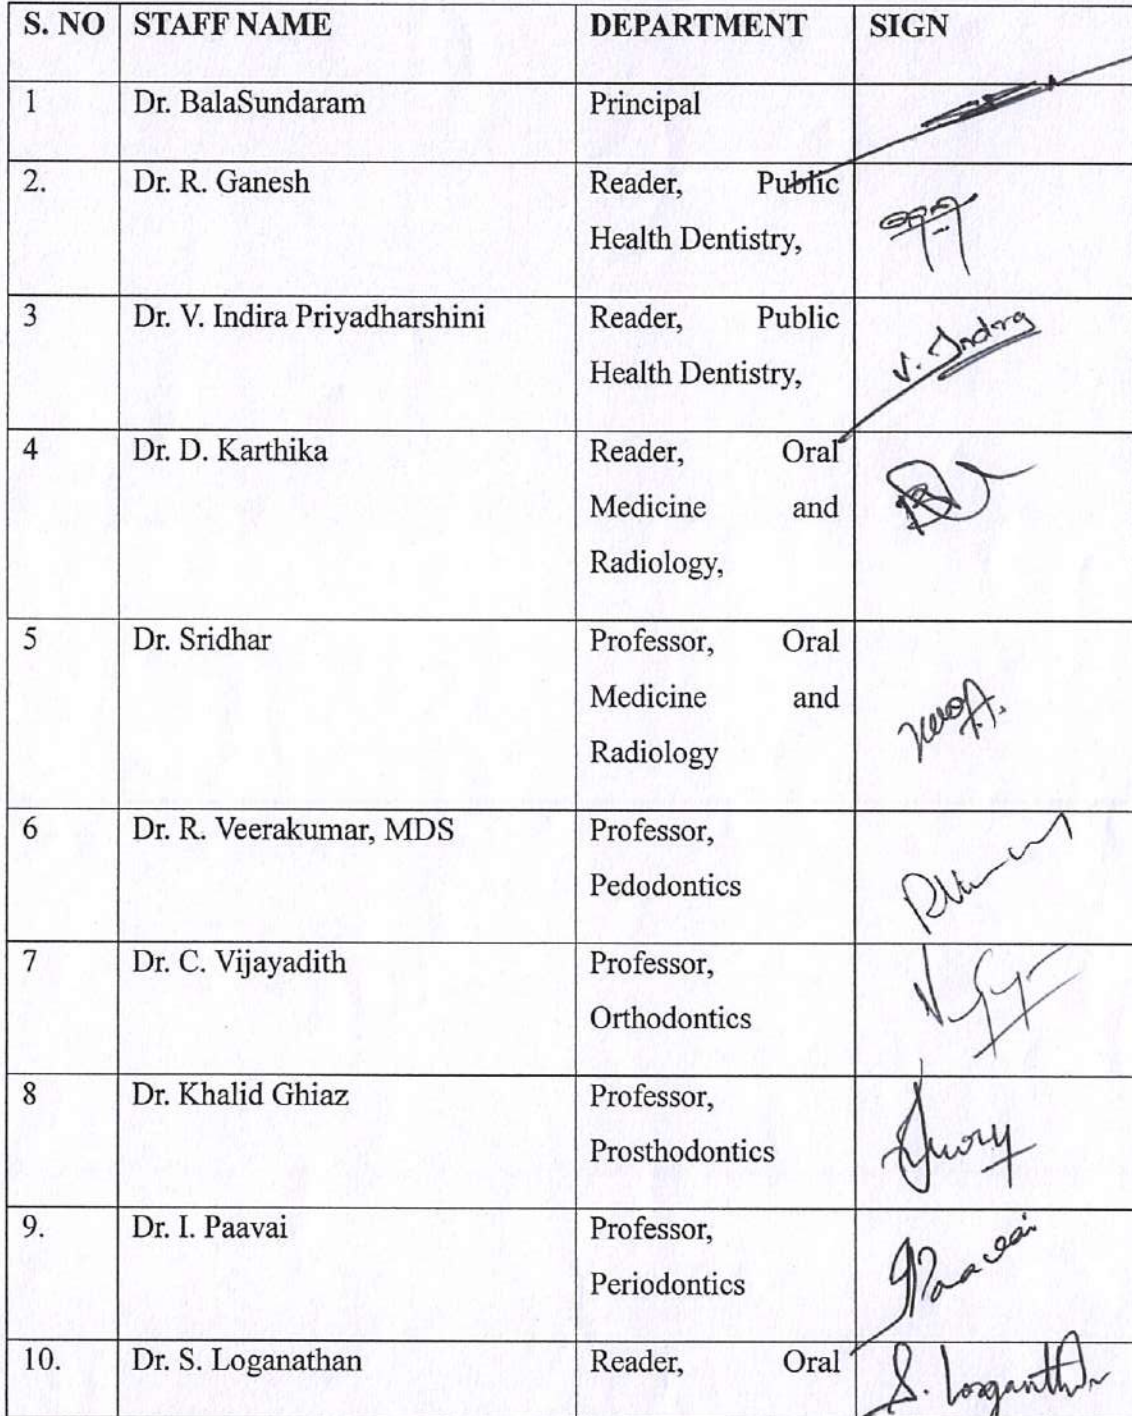 S. NO STAFF NAME DEPARTMENT SIGN
1 Dr. BalaSundaram Principal
2. Dr. R. Ganesh Reader, Public
Health Dentistry,
3 Dr. V. Indira Priyadharshini Reader, Public
Health Dentistry,
V. Indira
4 Dr. D. Karthika Reader, Oral
Medicine and
Radiology,
5 Dr. Sridhar Professor, Oral
Medicine and
Radiology
6 Dr. R. Veerakumar, MDS Professor,
Pedodontics
7 Dr. C. Vijayadith Professor,
Orthodontics
8 Dr. Khalid Ghiaz Professor,
Prosthodontics
9. Dr. I. Paavai Professor,
Periodontics
10. Dr. S. Loganathan Reader, Oral
S. Loganathan